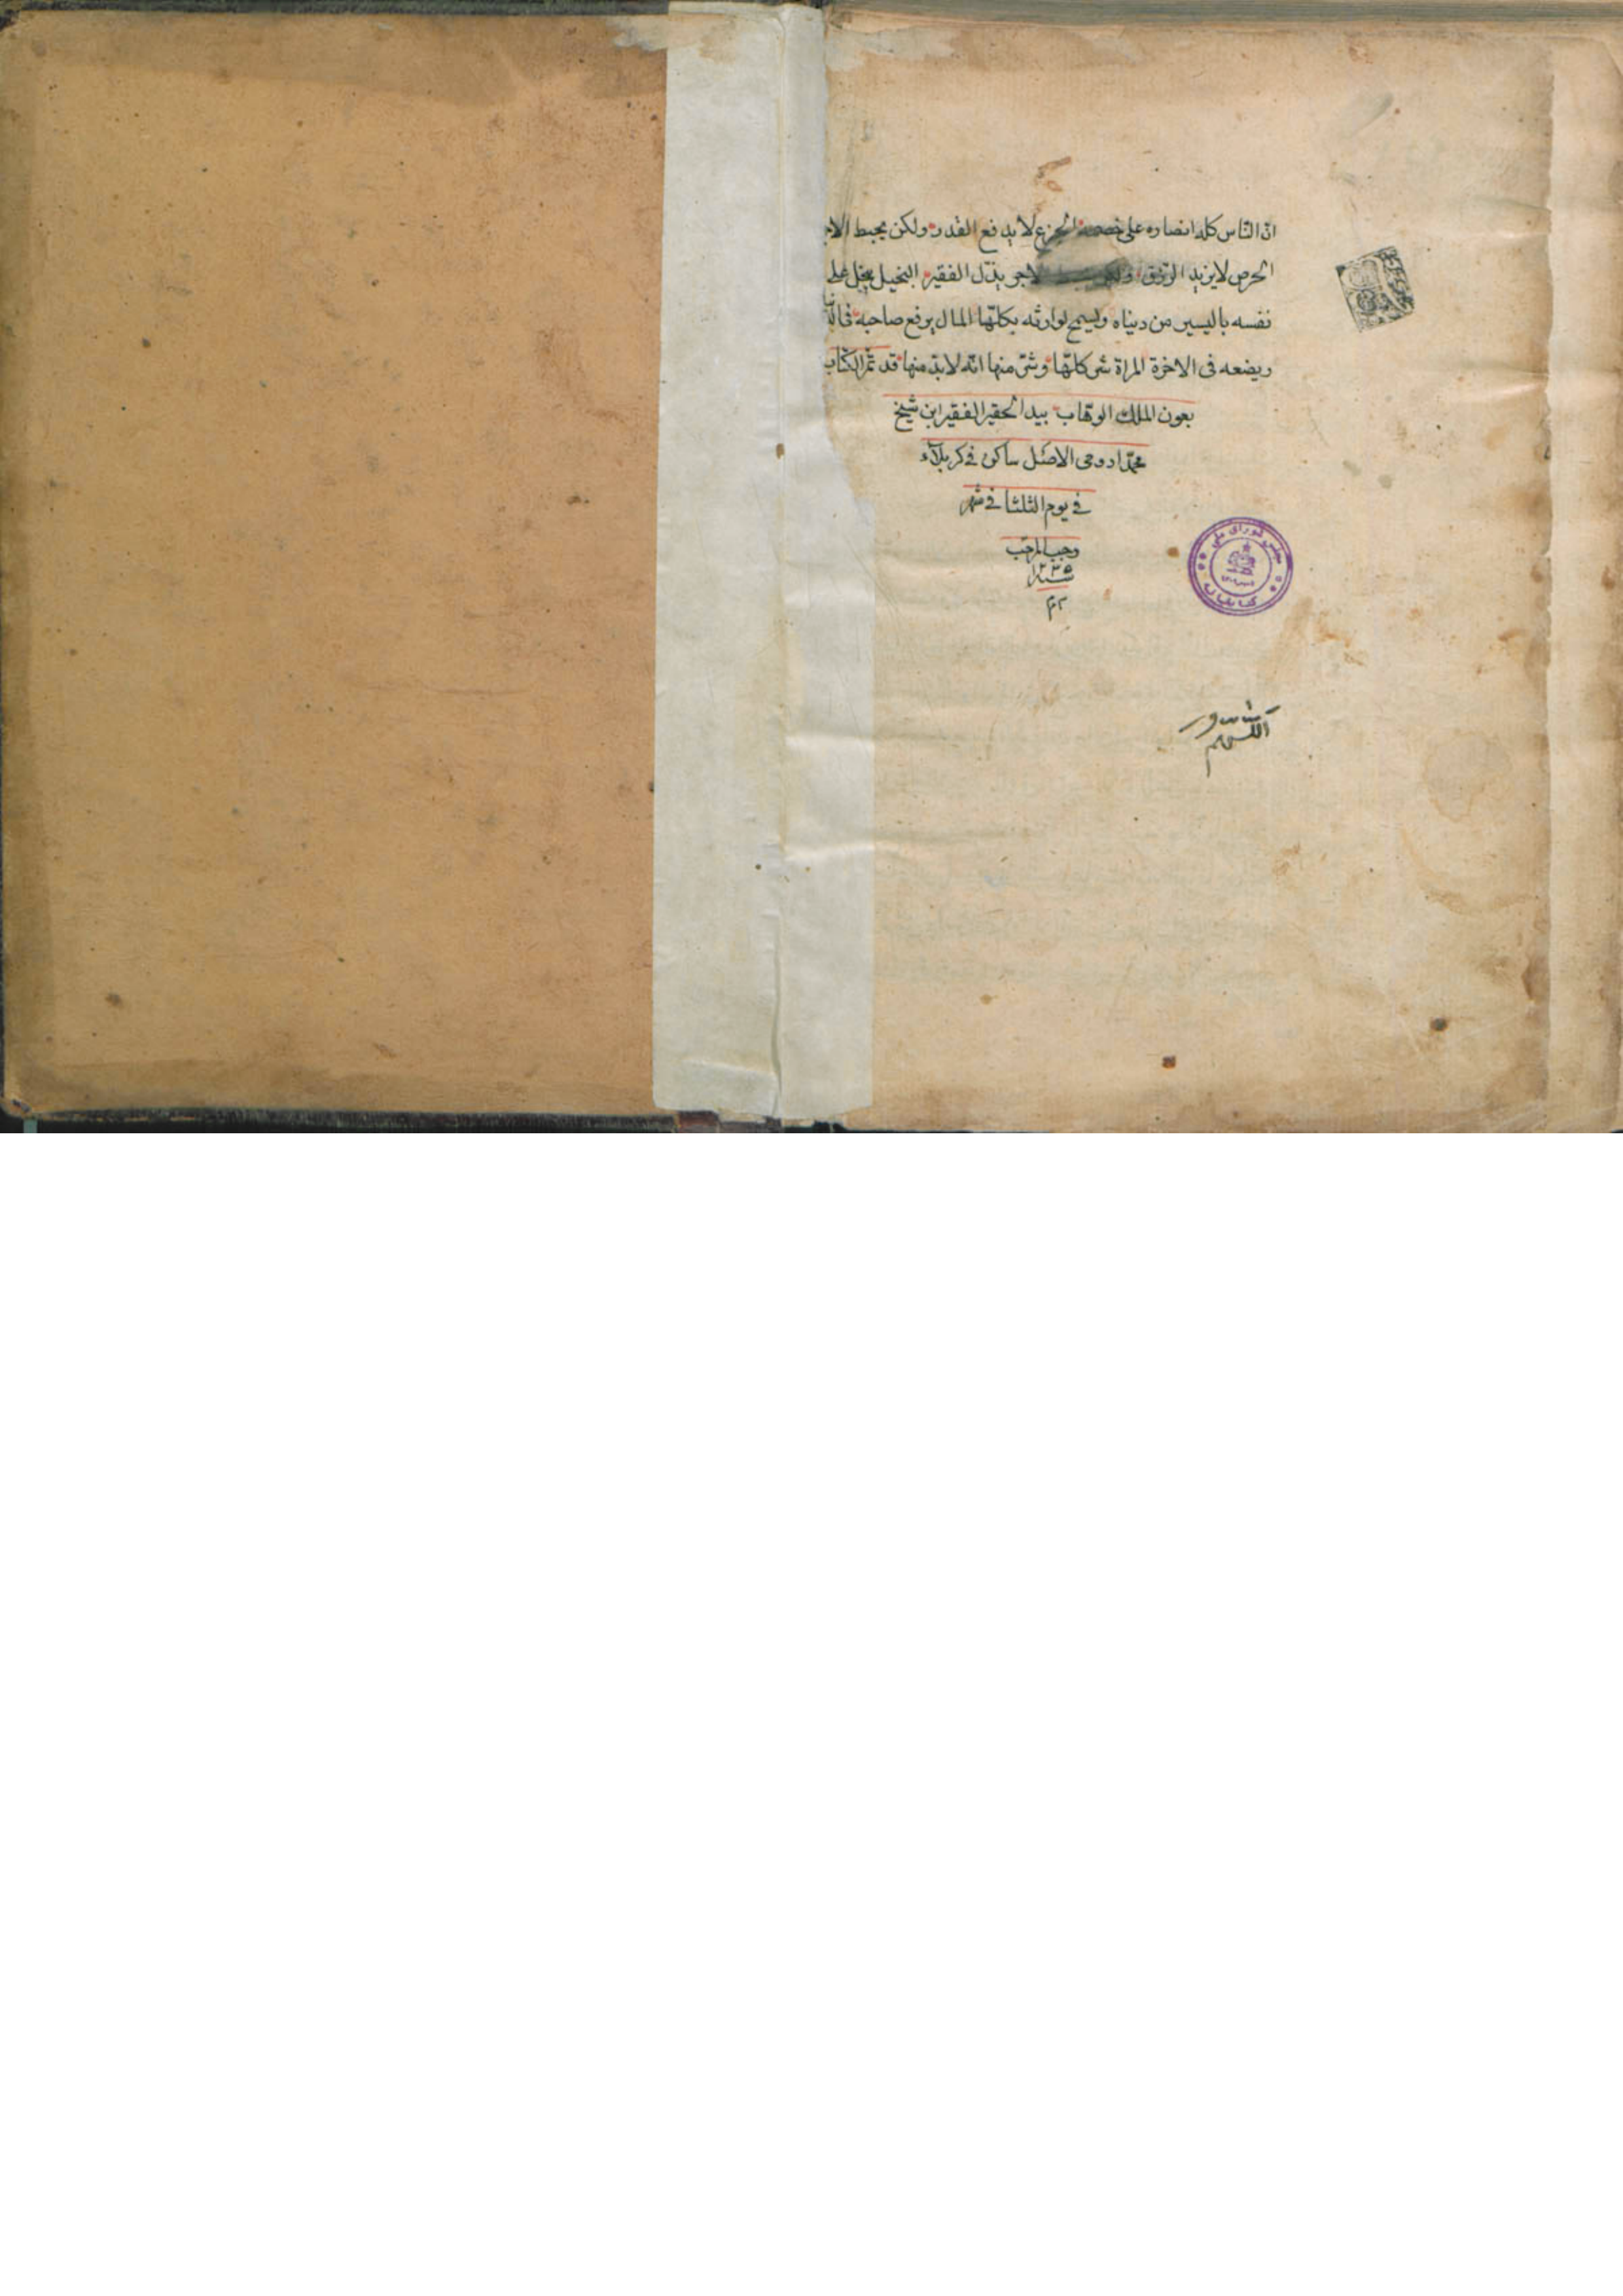 ان الناس كله انصاره على خصمه الجزع لا يدفع القدر ولكن يحبط الاجر
الحرص لا يزيد الرزق ولكن الاجر يذل الفقير البخيل يبخل على
نفسه باليسير من دنياه ويسمح لوارثه بكلها المال يرفع صاحبه فى الدنيا
ويضعه فى الاخرة المراة شر كلها وشر منها انه لابد منها قد تم الكتاب
بعون الملك الوهاب بيد الحقير الفقير ابن شيخ
محمد الاصل ساكن في كربلاء
في يوم الثلثا في شهر
رجب المرجب
سنه
مجلس شورای ملی
کتابخانه